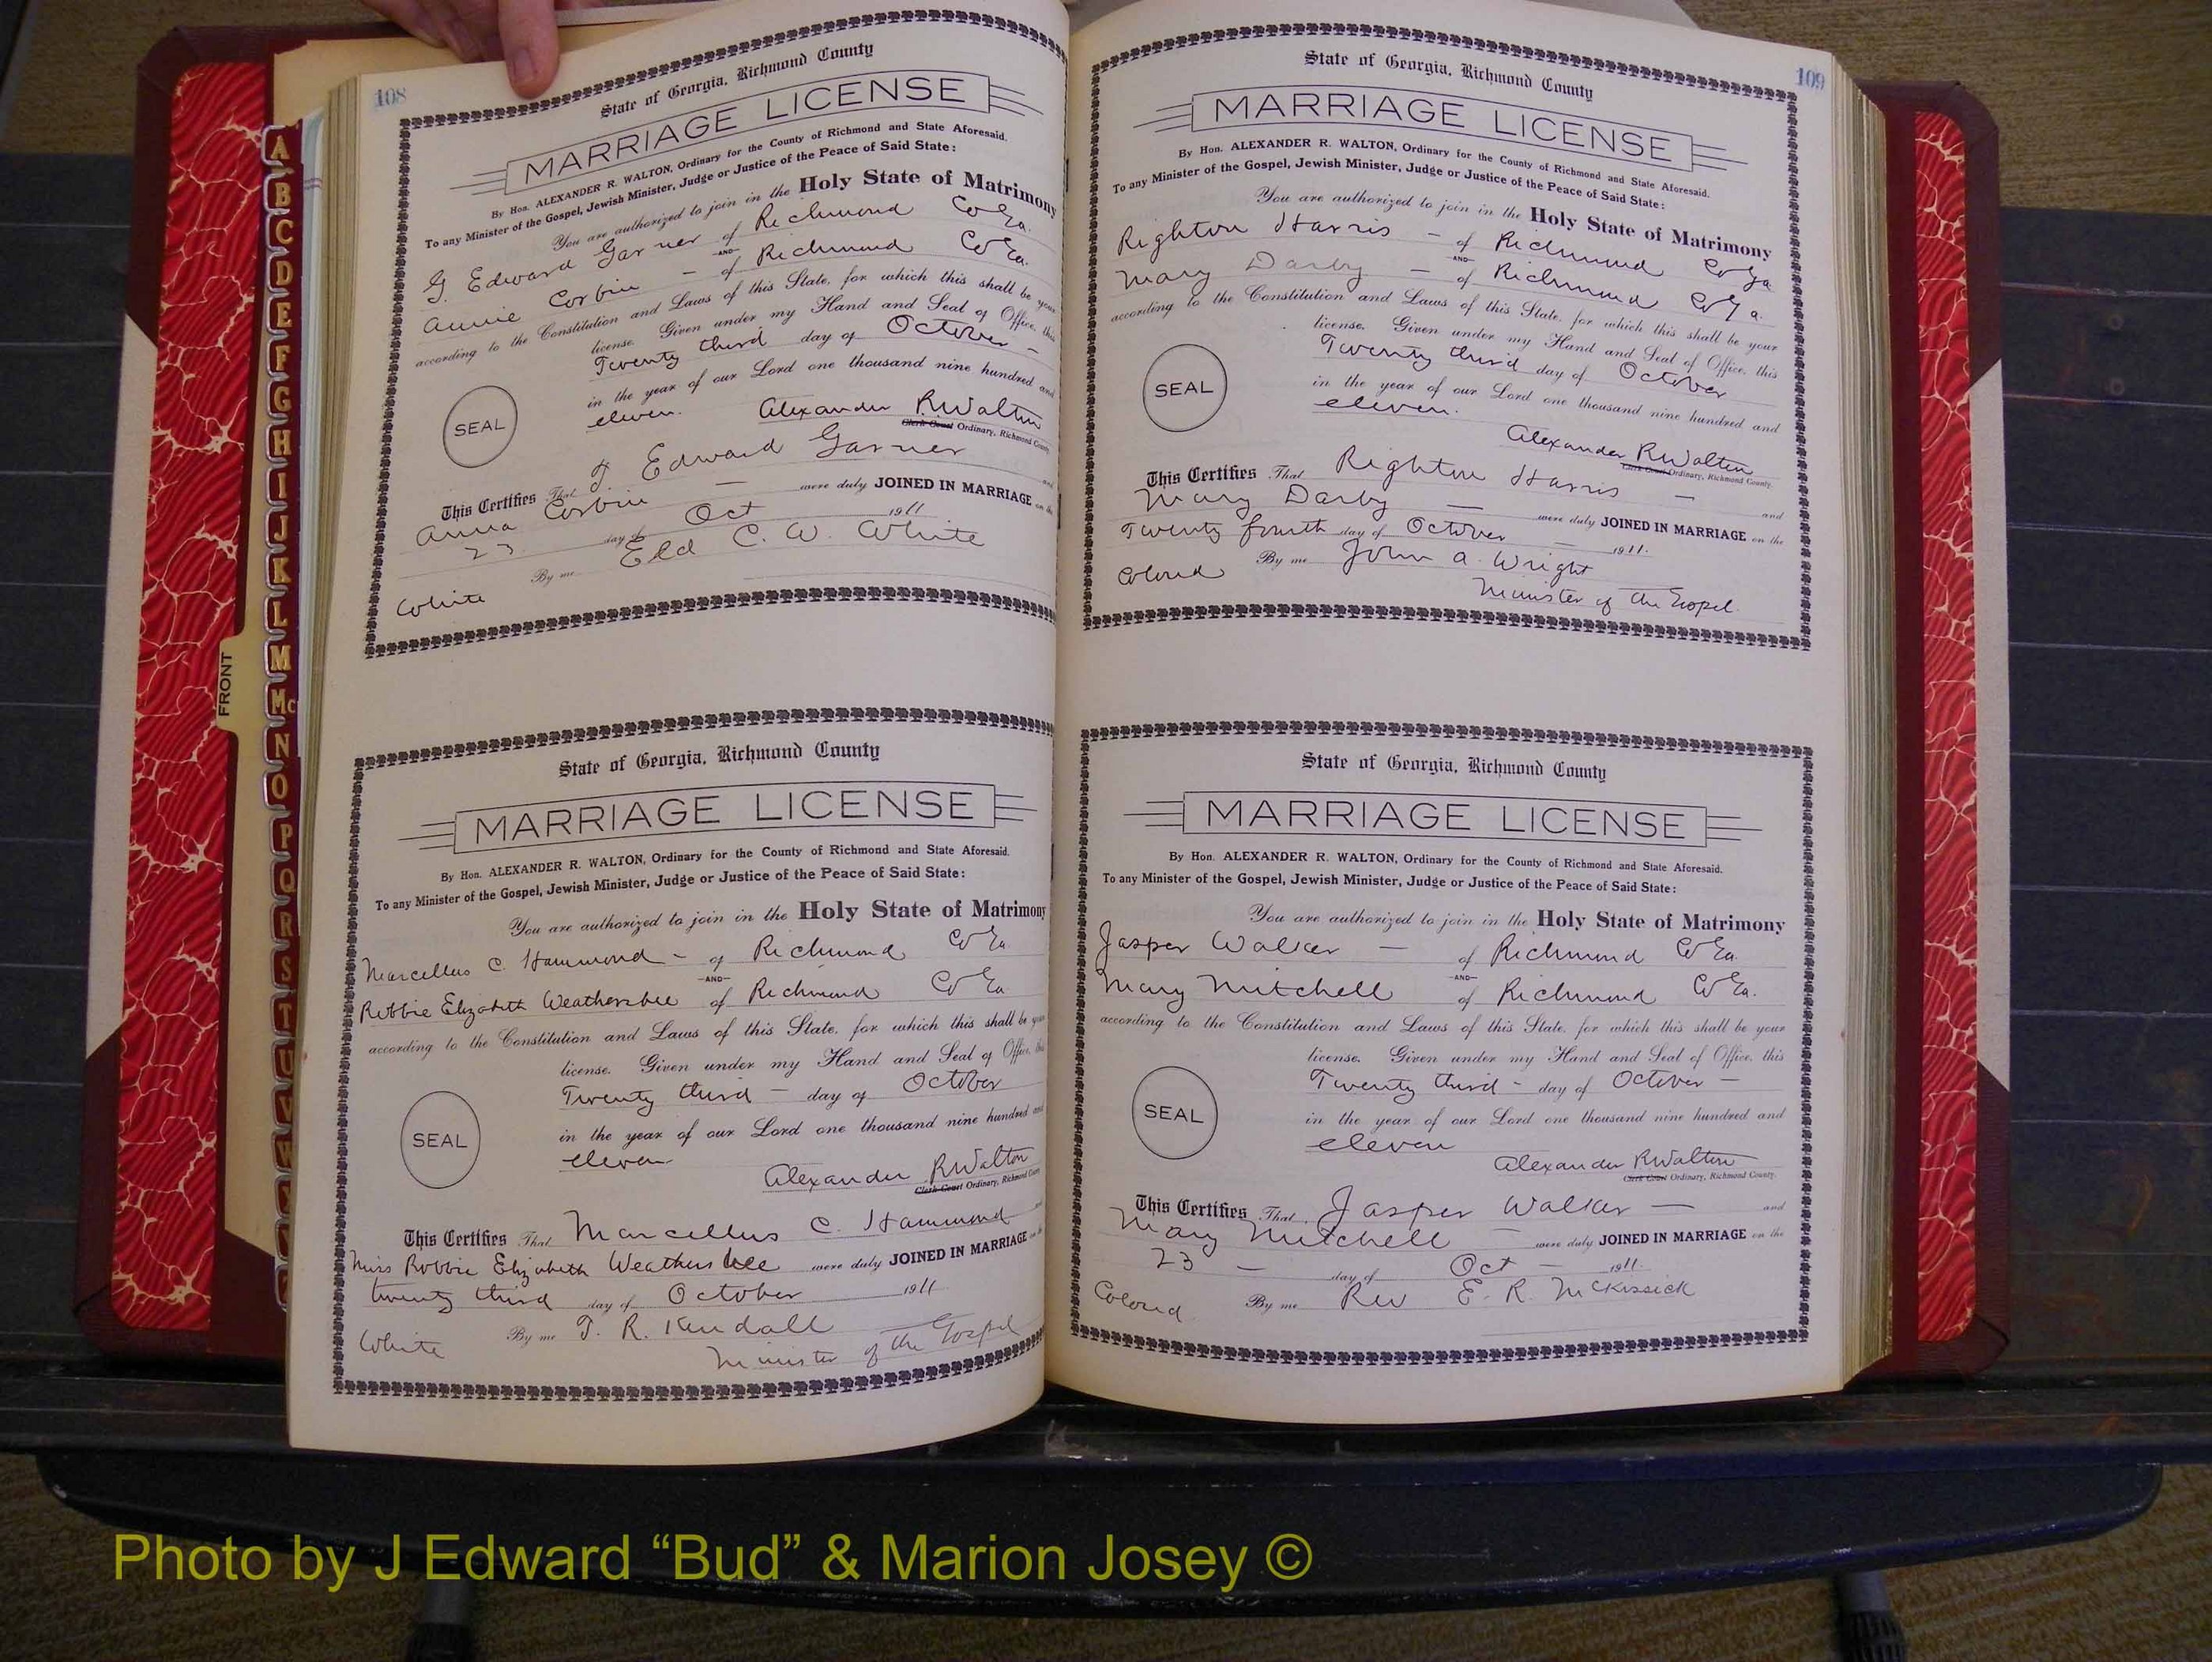 108
State of Georgia, Richmond County
MARRIAGE LICENSE
By Hon. ALEXANDER R. WALTON, Ordinary for the County of Richmond and State Aforesaid.
To any Minister of the Gospel, Jewish Minister, Judge or Justice of the Peace of Said State:
You are authorized to join in the Holy State of Matrimony
G. Edward Garner of Richmond Co Ga.
-AND-
Annie Corbin - of Richmond Co Ga.
according to the Constitution and Laws of this State, for which this shall be your
license. Given under my Hand and Seal of Office, this
Twenty third day of October -
in the year of our Lord one thousand nine hundred and
eleven.
SEAL
Alexander R Walton
Clerk Court Ordinary, Richmond County
This Certifies That G. Edward Garner and
Anna Corbin - were duly JOINED IN MARRIAGE on the
23 day of Oct 1911
By me Eld C. W. White
White
State of Georgia, Richmond County
MARRIAGE LICENSE
By Hon. ALEXANDER R. WALTON, Ordinary for the County of Richmond and State Aforesaid.
To any Minister of the Gospel, Jewish Minister, Judge or Justice of the Peace of Said State:
You are authorized to join in the Holy State of Matrimony
Marcellus C. Hammond - of Richmond Co Ga.
-AND-
Robbie Elizabeth Weathersbee of Richmond Co Ga.
according to the Constitution and Laws of this State, for which this shall be your
license. Given under my Hand and Seal of Office, this
Twenty third - day of October
in the year of our Lord one thousand nine hundred and
eleven
SEAL
Alexander R Walton
Clerk Court Ordinary, Richmond County
This Certifies That Marcellus C. Hammond and
Miss Robbie Elizabeth Weathersbee were duly JOINED IN MARRIAGE on the
twenty third day of October 1911
By me T. R. Kendall
White Minister of the Gospel
109
State of Georgia, Richmond County
MARRIAGE LICENSE
By Hon. ALEXANDER R. WALTON, Ordinary for the County of Richmond and State Aforesaid.
To any Minister of the Gospel, Jewish Minister, Judge or Justice of the Peace of Said State:
You are authorized to join in the Holy State of Matrimony
Righton Harris - of Richmond Co Ga
-AND-
Mary Darby - of Richmond Co Ga.
according to the Constitution and Laws of this State, for which this shall be your
license. Given under my Hand and Seal of Office, this
Twenty third day of October
in the year of our Lord one thousand nine hundred and
eleven.
SEAL
Alexander R Walton
Clerk Court Ordinary, Richmond County.
This Certifies That Righton Harris - and
Mary Darby - were duly JOINED IN MARRIAGE on the
Twenty fourth day of October - 1911.
Colored By me John A. Wright
Minister of the Gospel.
State of Georgia, Richmond County
MARRIAGE LICENSE
By Hon. ALEXANDER R. WALTON, Ordinary for the County of Richmond and State Aforesaid.
To any Minister of the Gospel, Jewish Minister, Judge or Justice of the Peace of Said State:
You are authorized to join in the Holy State of Matrimony
Jasper Walker - of Richmond Co Ga.
-AND-
Mary Mitchell of Richmond Co Ga.
according to the Constitution and Laws of this State, for which this shall be your
license. Given under my Hand and Seal of Office, this
Twenty third - day of October -
in the year of our Lord one thousand nine hundred and
eleven
SEAL
Alexander R Walton
Clerk Court Ordinary, Richmond County.
This Certifies That Jasper Walker - and
Mary Mitchell - were duly JOINED IN MARRIAGE on the
23 - day of Oct - 1911.
Colored By me Rev E. R. McKissick
FRONT
A
B
C
D
E
F
G
H
I
J
K
L
M
Mc
N
O
P
Q
R
S
T
U
V
W
Photo by J Edward “Bud” & Marion Josey ©